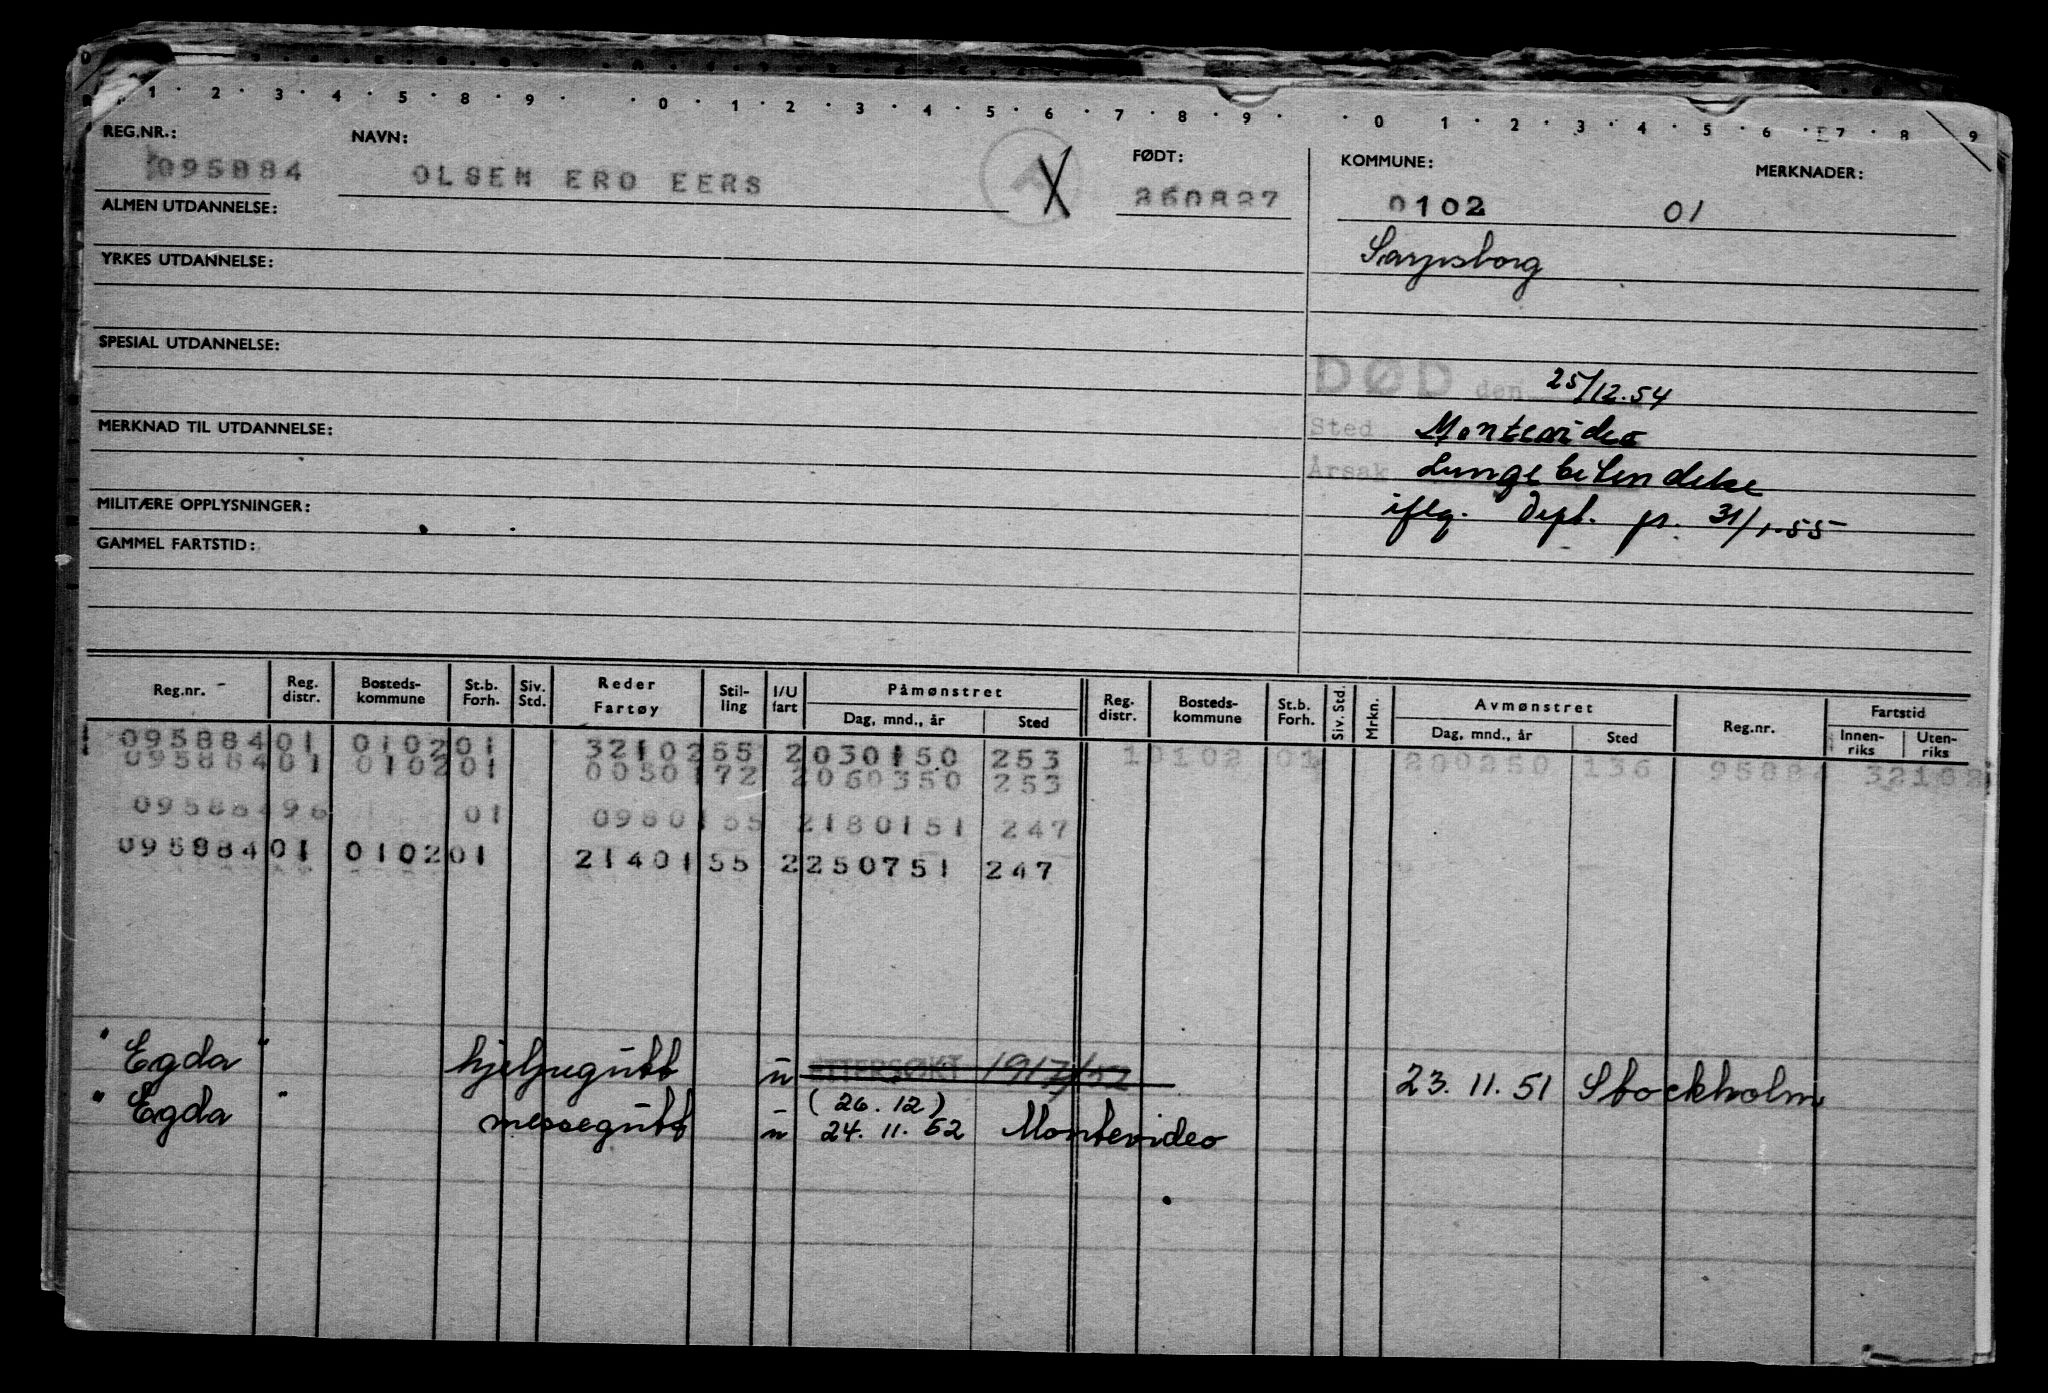 1 · 2 · 3 · 4 · 5 · 8 · 9 · · 0 · 1 · 2 · 3 · 4 · 5 · 6 · 7 · 8 · 9 · · 0 · 1 · 2 · 3 · 4 · 5 · 6 · 7 · 8 · 9
REG.NR.: NAVN: FØDT: KOMMUNE: MERKNADER:
095884 OLSEN ERO EERS 260827 0102 01
ALMEN UTDANNELSE:
Sarpsborg
YRKES UTDANNELSE:
SPESIAL UTDANNELSE:
DØD den 25/12.54
MERKNAD TIL UTDANNELSE:
Sted Montevideo
Årsak Lungebetendelse
MILITÆRE OPPLYSNINGER:
iflg. Dept. pr. 31/1-55
GAMMEL FARTSTID:
Reg.nr. Reg. distr. Bosteds- kommune St.b. Forh. Siv. Std. Reder Fartøy Stil- ling I/U fart Påmønstret Dag, mnd., år Sted Reg. distr. Bosteds- kommune St.b. Forh. Siv. Std. Mrkn. Avmønstret Dag, mnd., år Sted Reg.nr. Fartstid Innen- riks Uten- riks
095884 01 0102 01 32102 55 2 030150 253 1 0102 01 200250 136 95884 32102
095884 01 0102 01 00501 72 2 060350 253
095884 96 01 09801 55 2 180151 247
095884 01 0102 01 21401 55 2 250751 247
" Egda " hjelpegutt u ETTERSØKT 23.11.51 Stockholm
" Egda " messegutt u (26.12) 24.11.52 Montevideo